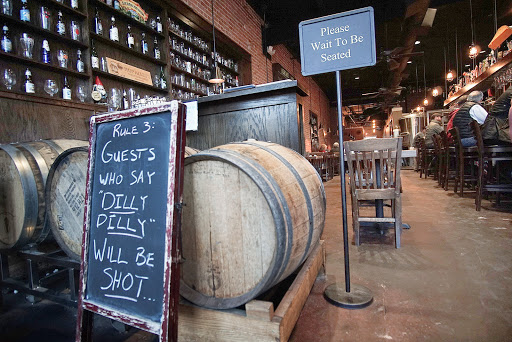 Please
Wait To Be
Seated
RULE 3:
GUESTS
WHO SAY
"DILLY
DILLY"
WILL BE
SHOT...